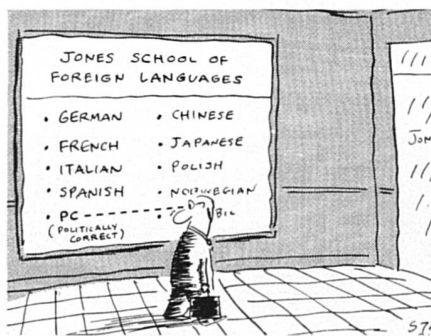 JONES SCHOOL OF
FOREIGN LANGUAGES
• GERMAN
• FRENCH
• ITALIAN
• SPANISH
• PC
(POLITICALLY
CORRECT)
• CHINESE
• JAPANESE
• POLISH
• NORWEGIAN
•